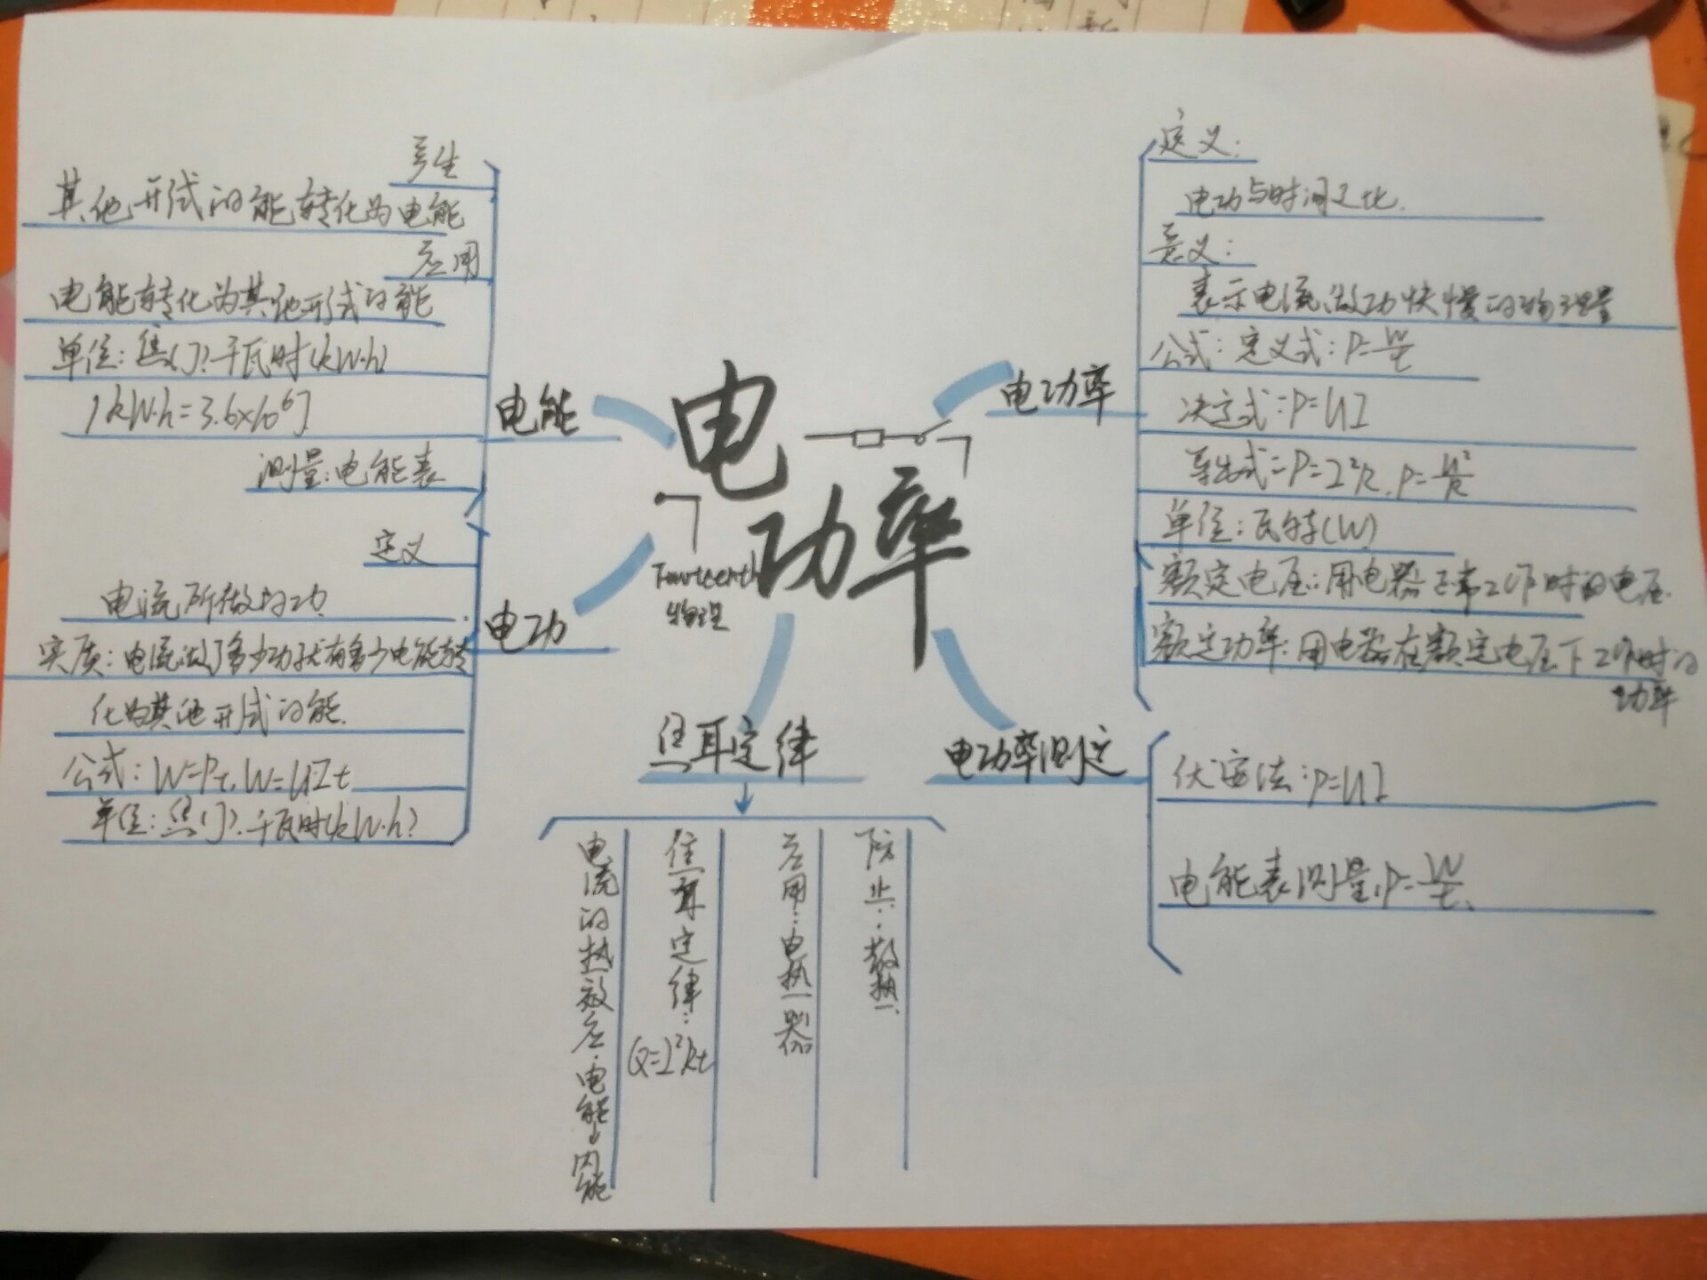 电功率
Fourteenth
物理
电能
产生
其他形式的能转化为电能
应用
电能转化为其他形式的能
单位：焦(J).千瓦时(kW·h)
1kW·h=3.6×10⁶J
测量：电能表
电功
定义
电流所做的功
实质：电流做了多少功就有多少电能转
化为其他形式的能.
公式：W=Pt,W=UIt
单位：焦(J).千瓦时(kW·h)
焦耳定律
电流的热效应：电能→内能
焦耳定律：Q=I²Rt
应用：电热器
防止：散热
电功率
定义：
电功与时间之比.
意义：
表示电流做功快慢的物理量
公式：定义式：P=W/t
决定式：P=UI
导出式：P=I²R.P=U²/R
单位：瓦特(W)
额定电压：用电器正常工作时的电压.
额定功率：用电器在额定电压下工作时的
功率
电功率测定
伏安法：P=UI
电能表测量,P=W/t.